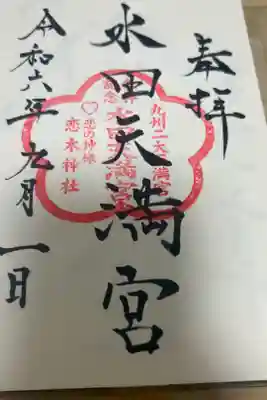 奉拝
水田天満宮
九州二大天満宮
水田天満宮
恋の神様
恋木神社
令和六年九月一日